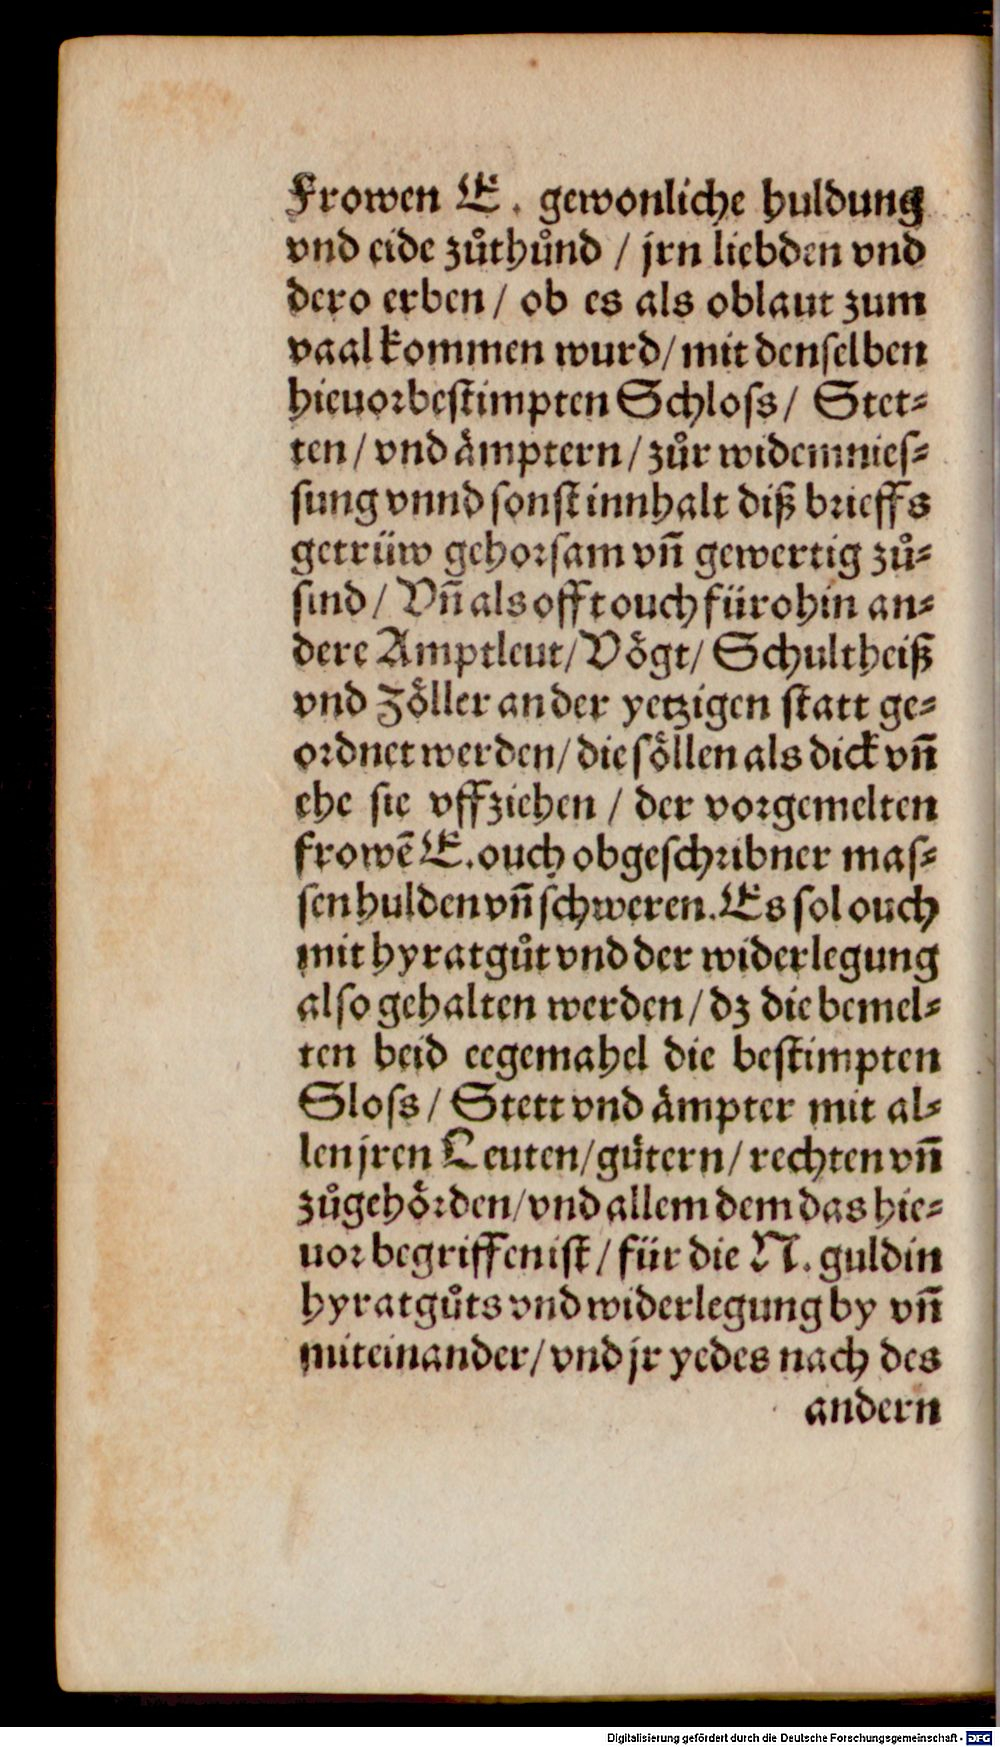 Frowen E. gewonliche huldung
vnd eide zůthůnd / jrn liebden vnd
dero erben / ob es als oblaut zum
vaal kommen wurd / mit denselben
hieuorbestimpten Schloss / Stet⸗
ten / vnd ämptern / zůr widemnies⸗
sung vnnd sonst innhalt diß brieffs
getrüw gehorsam vñ gewertig zů⸗
sind / Vñ als offt ouch fürohin an⸗
dere Amptleut / Vögt / Schultheiß
vnd Zöller an der yetzigen statt ge⸗
ordnet werden / die söllen als dick vñ
ehe sie vffziehen / der vorgemelten
frowē E. ouch obgeschribner mas⸗
sen hulden vñ schweren. Es sol ouch
mit hyratgůt vnd der widerlegung
also gehalten werden / dz die bemel⸗
ten beid eegemahel die bestimpten
Sloss / Stett vnd ämpter mit al⸗
len jren Leuten / gütern / rechten vñ
zůgehörden / vnd allem dem das hie⸗
uor begriffen ist / für die N. guldin
hyratgůts vnd widerlegung by vñ
miteinander / vnd jr yedes nach des
andern
Digitalisierung gefördert durch die Deutsche Forschungsgemeinschaft - DFG